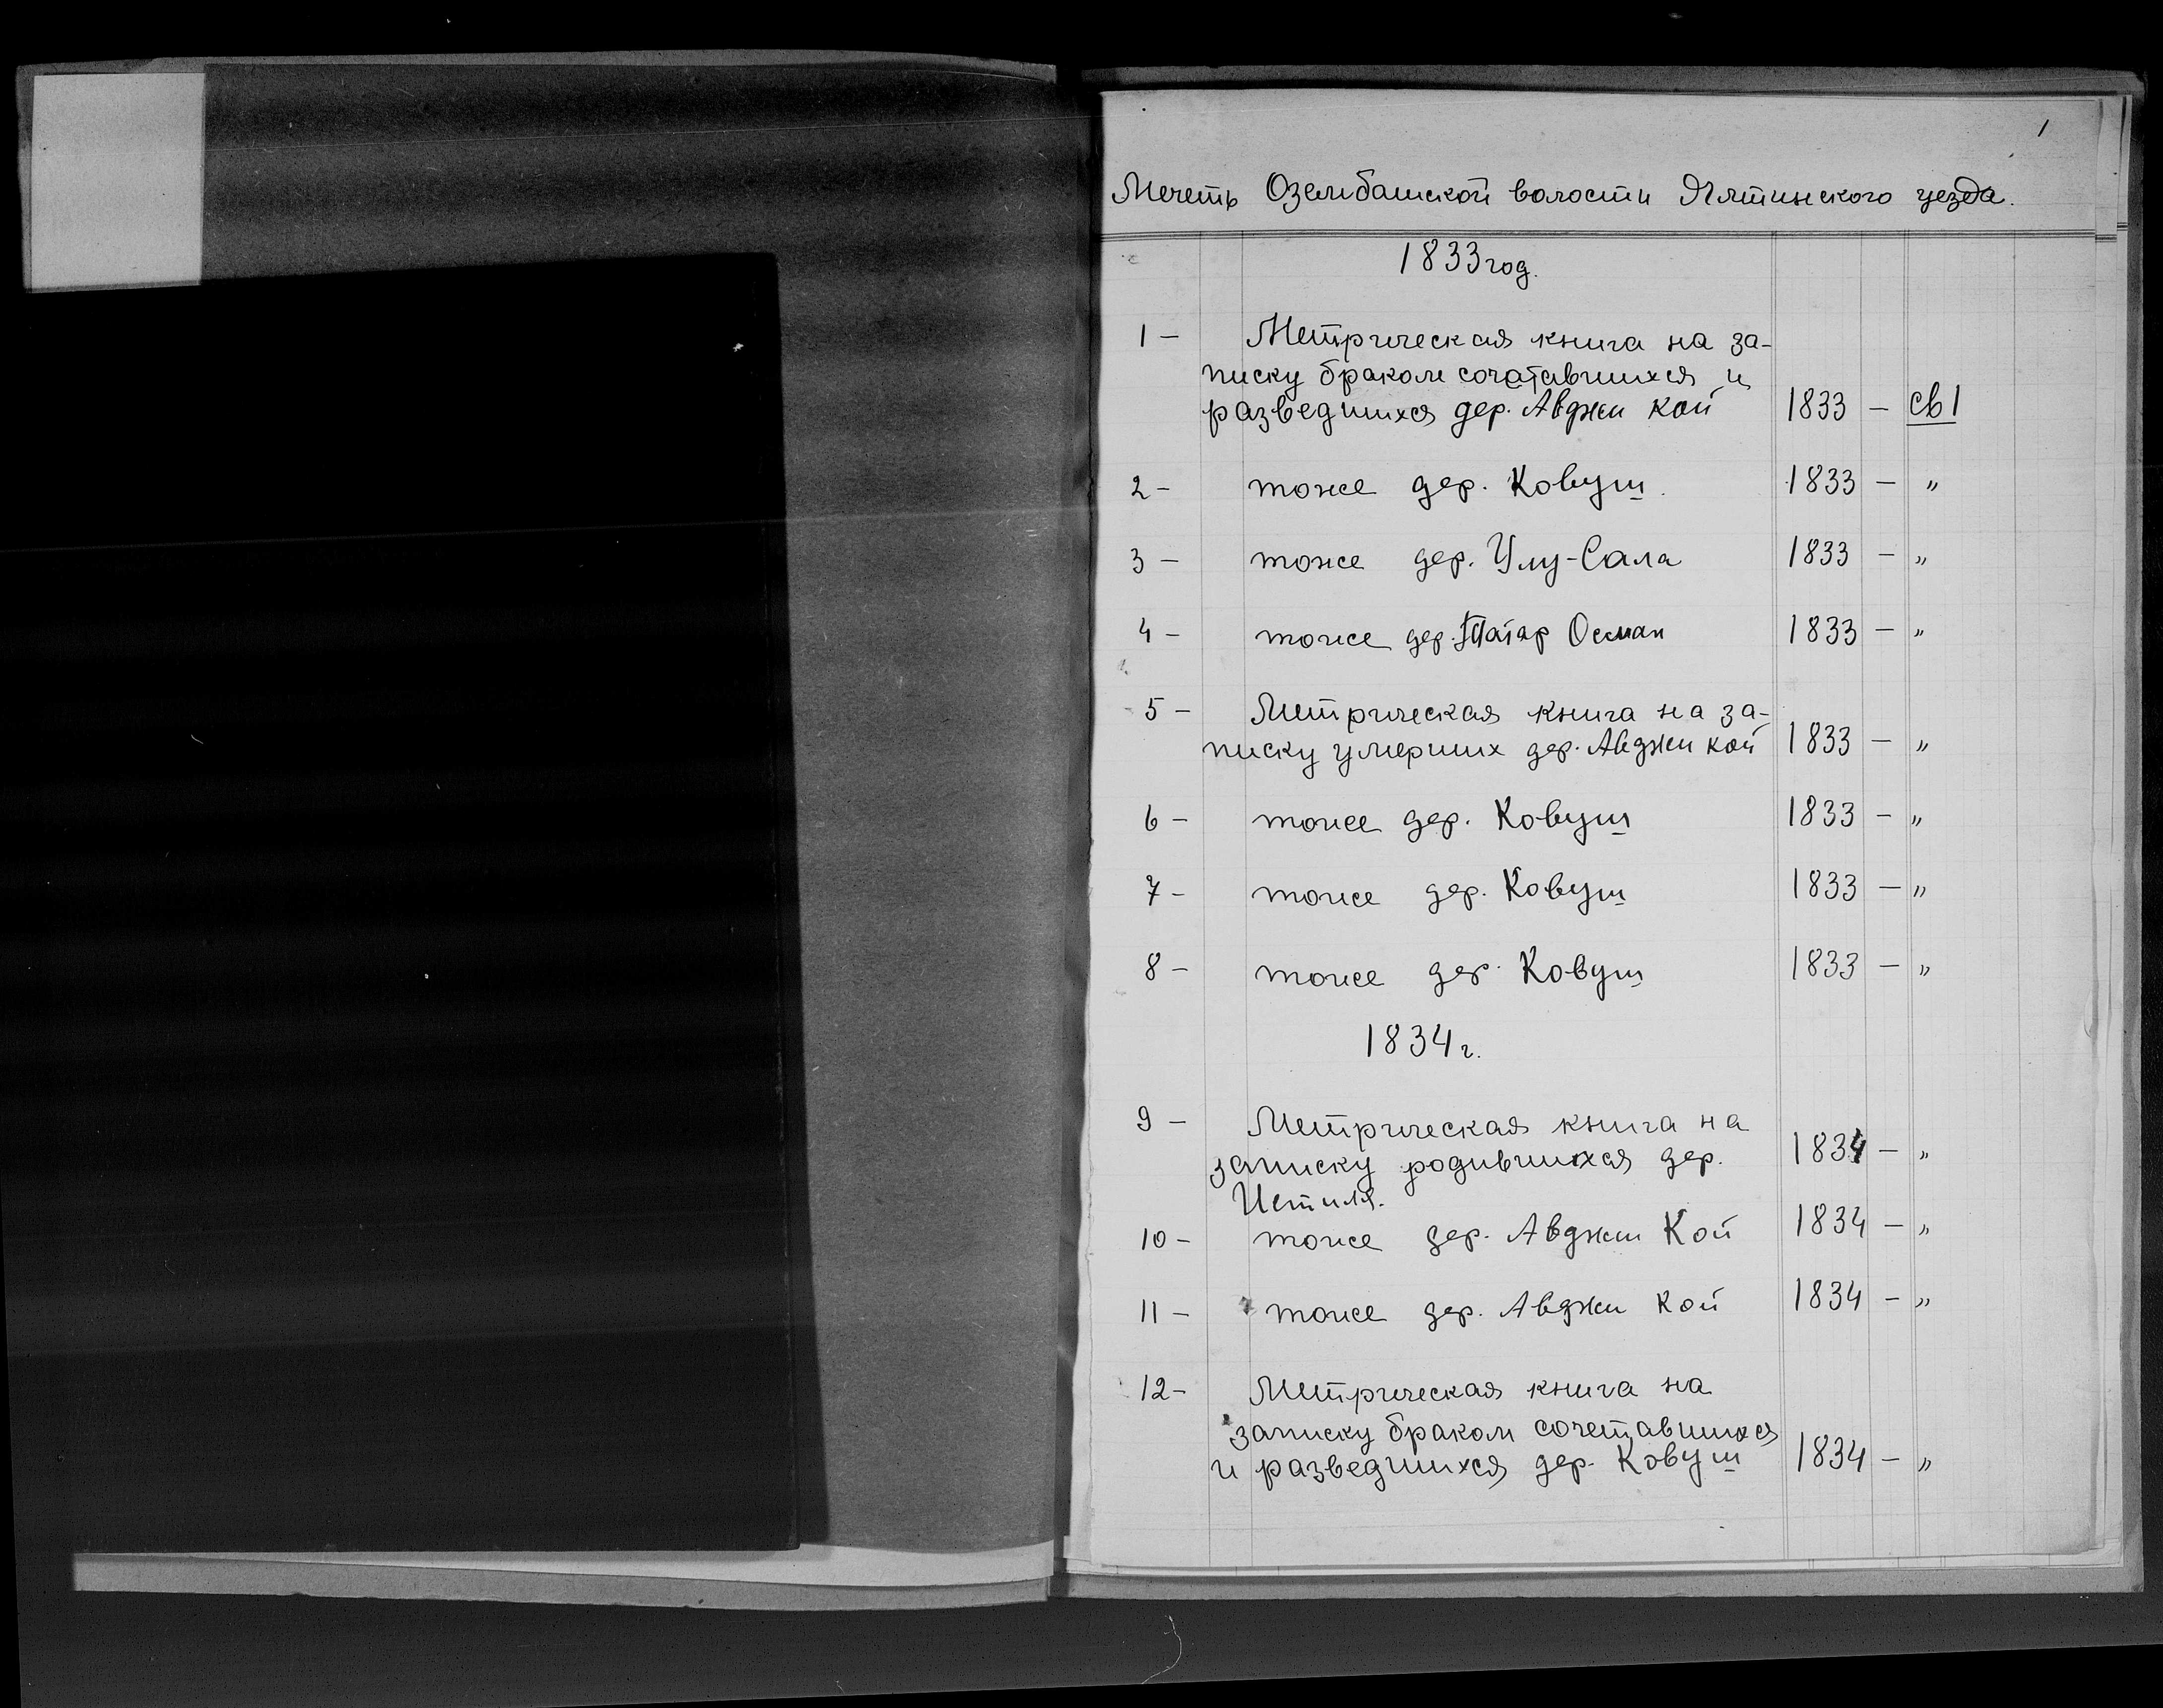 1
Мечеть Озенбашской волости Ялтинского уезда.
1833 год.
1 - Метрическая книга на за-
писку браком сочатавшихся и
разведшихся дер. Авджи кой 1833 - св 1
2 - тоже дер. Ковуш 1833 - "
3 - тоже дер. Улу-Сала 1833 - "
4 - тоже дер. Татар Осман 1833 - "
5 - Метрическая книга на за-
писку умерших дер. Авджи кой 1833 - "
6 - тоже дер. Ковуш 1833 - "
7 - тоже дер. Ковуш 1833 - "
8 - тоже дер. Ковуш 1833 - "
1834 г.
9 - Метрическая книга на
записку родившихся дер. 1834 - "
Истиля.
10 - тоже дер. Авджи Кой 1834 - "
11 - тоже дер. Авджи Кой 1834 - "
12 - Метрическая книга на
записку браком сочетавшихся
и разведшихся дер. Ковуш 1834 - "